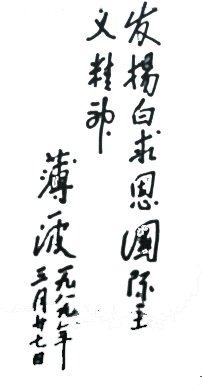 发揚白求恩國际主
义精神
薄一波
一九八九年
三月廿七日